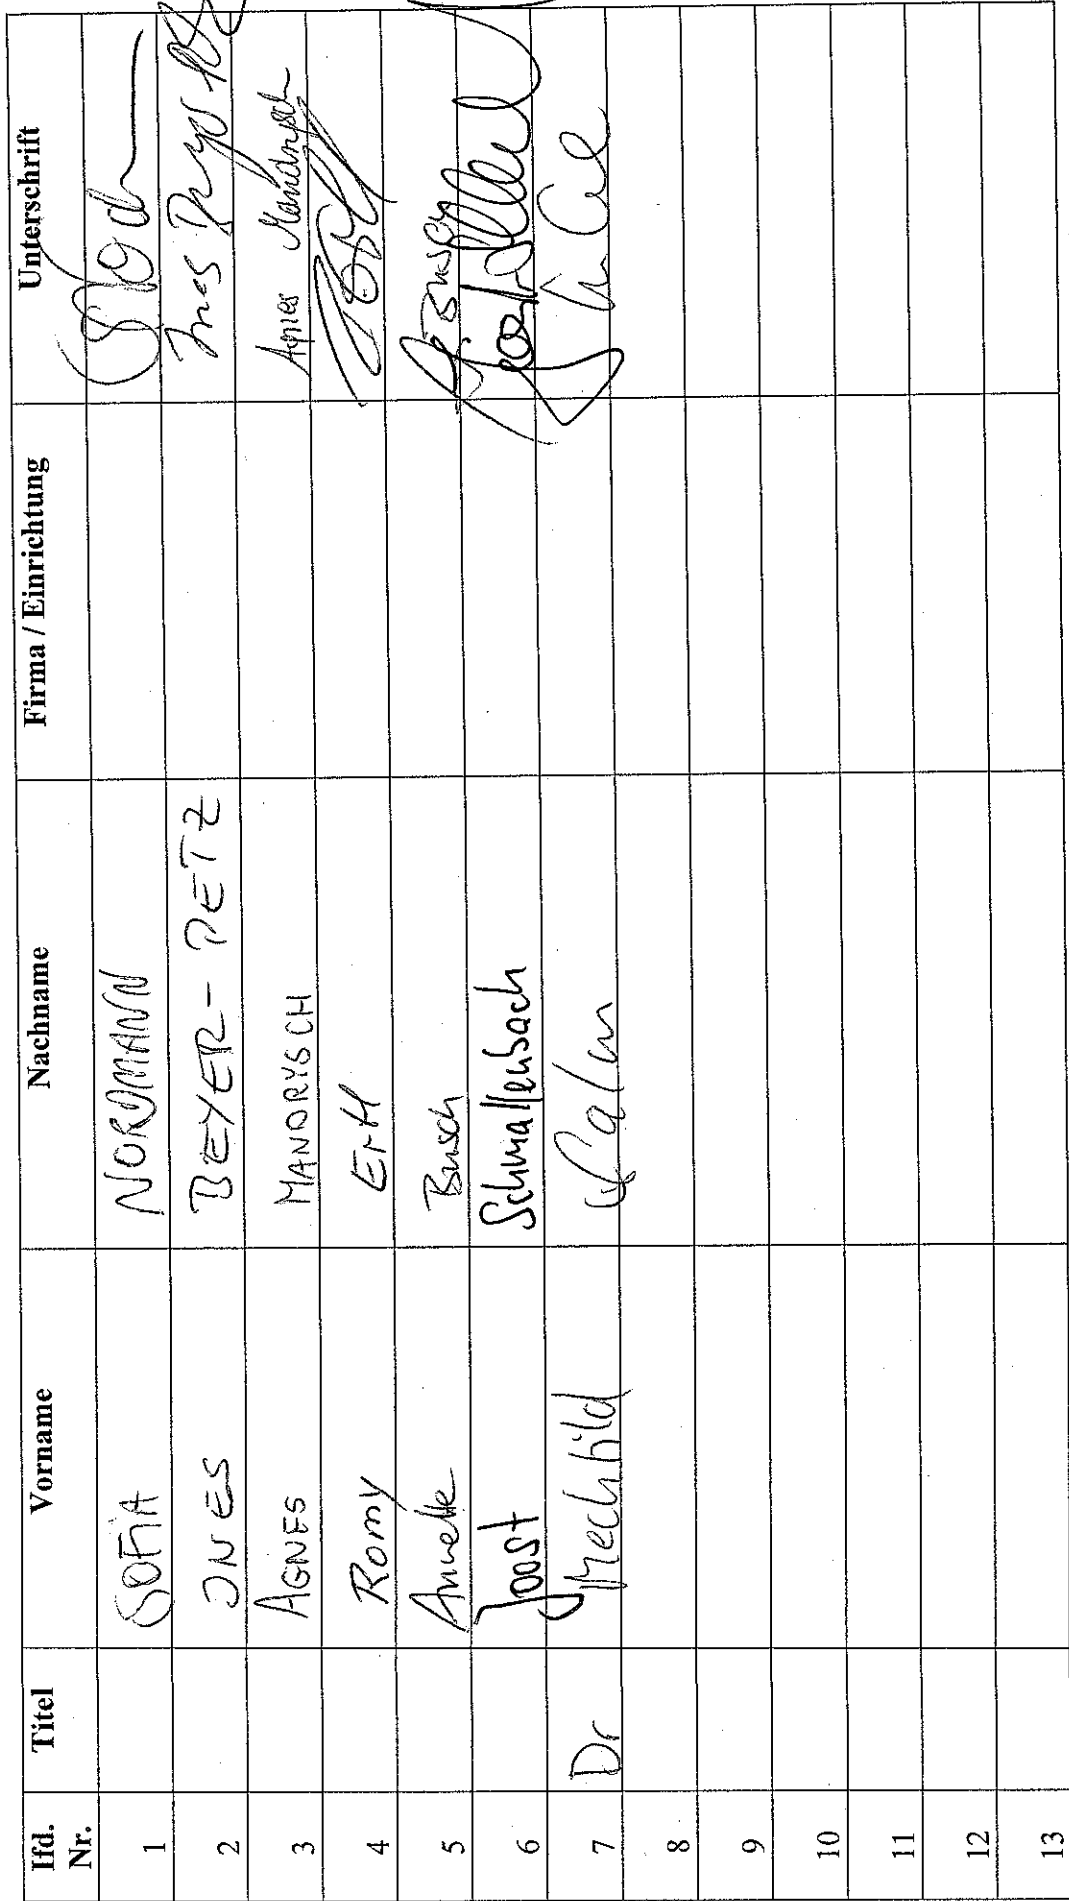 lfd. Nr. Titel Vorname Nachname Firma / Einrichtung Unterschrift
1 SOFIA NORDMANN
2 INES BEYER-PETZ Ines
3 AGNES MANDRYSCH Agnes Mandrysch
4 Romy Ertl
5 Annette Busch Busch
6 Joost Schmallenbach
7 Dr Mechthild
8
9
10
11
12
13